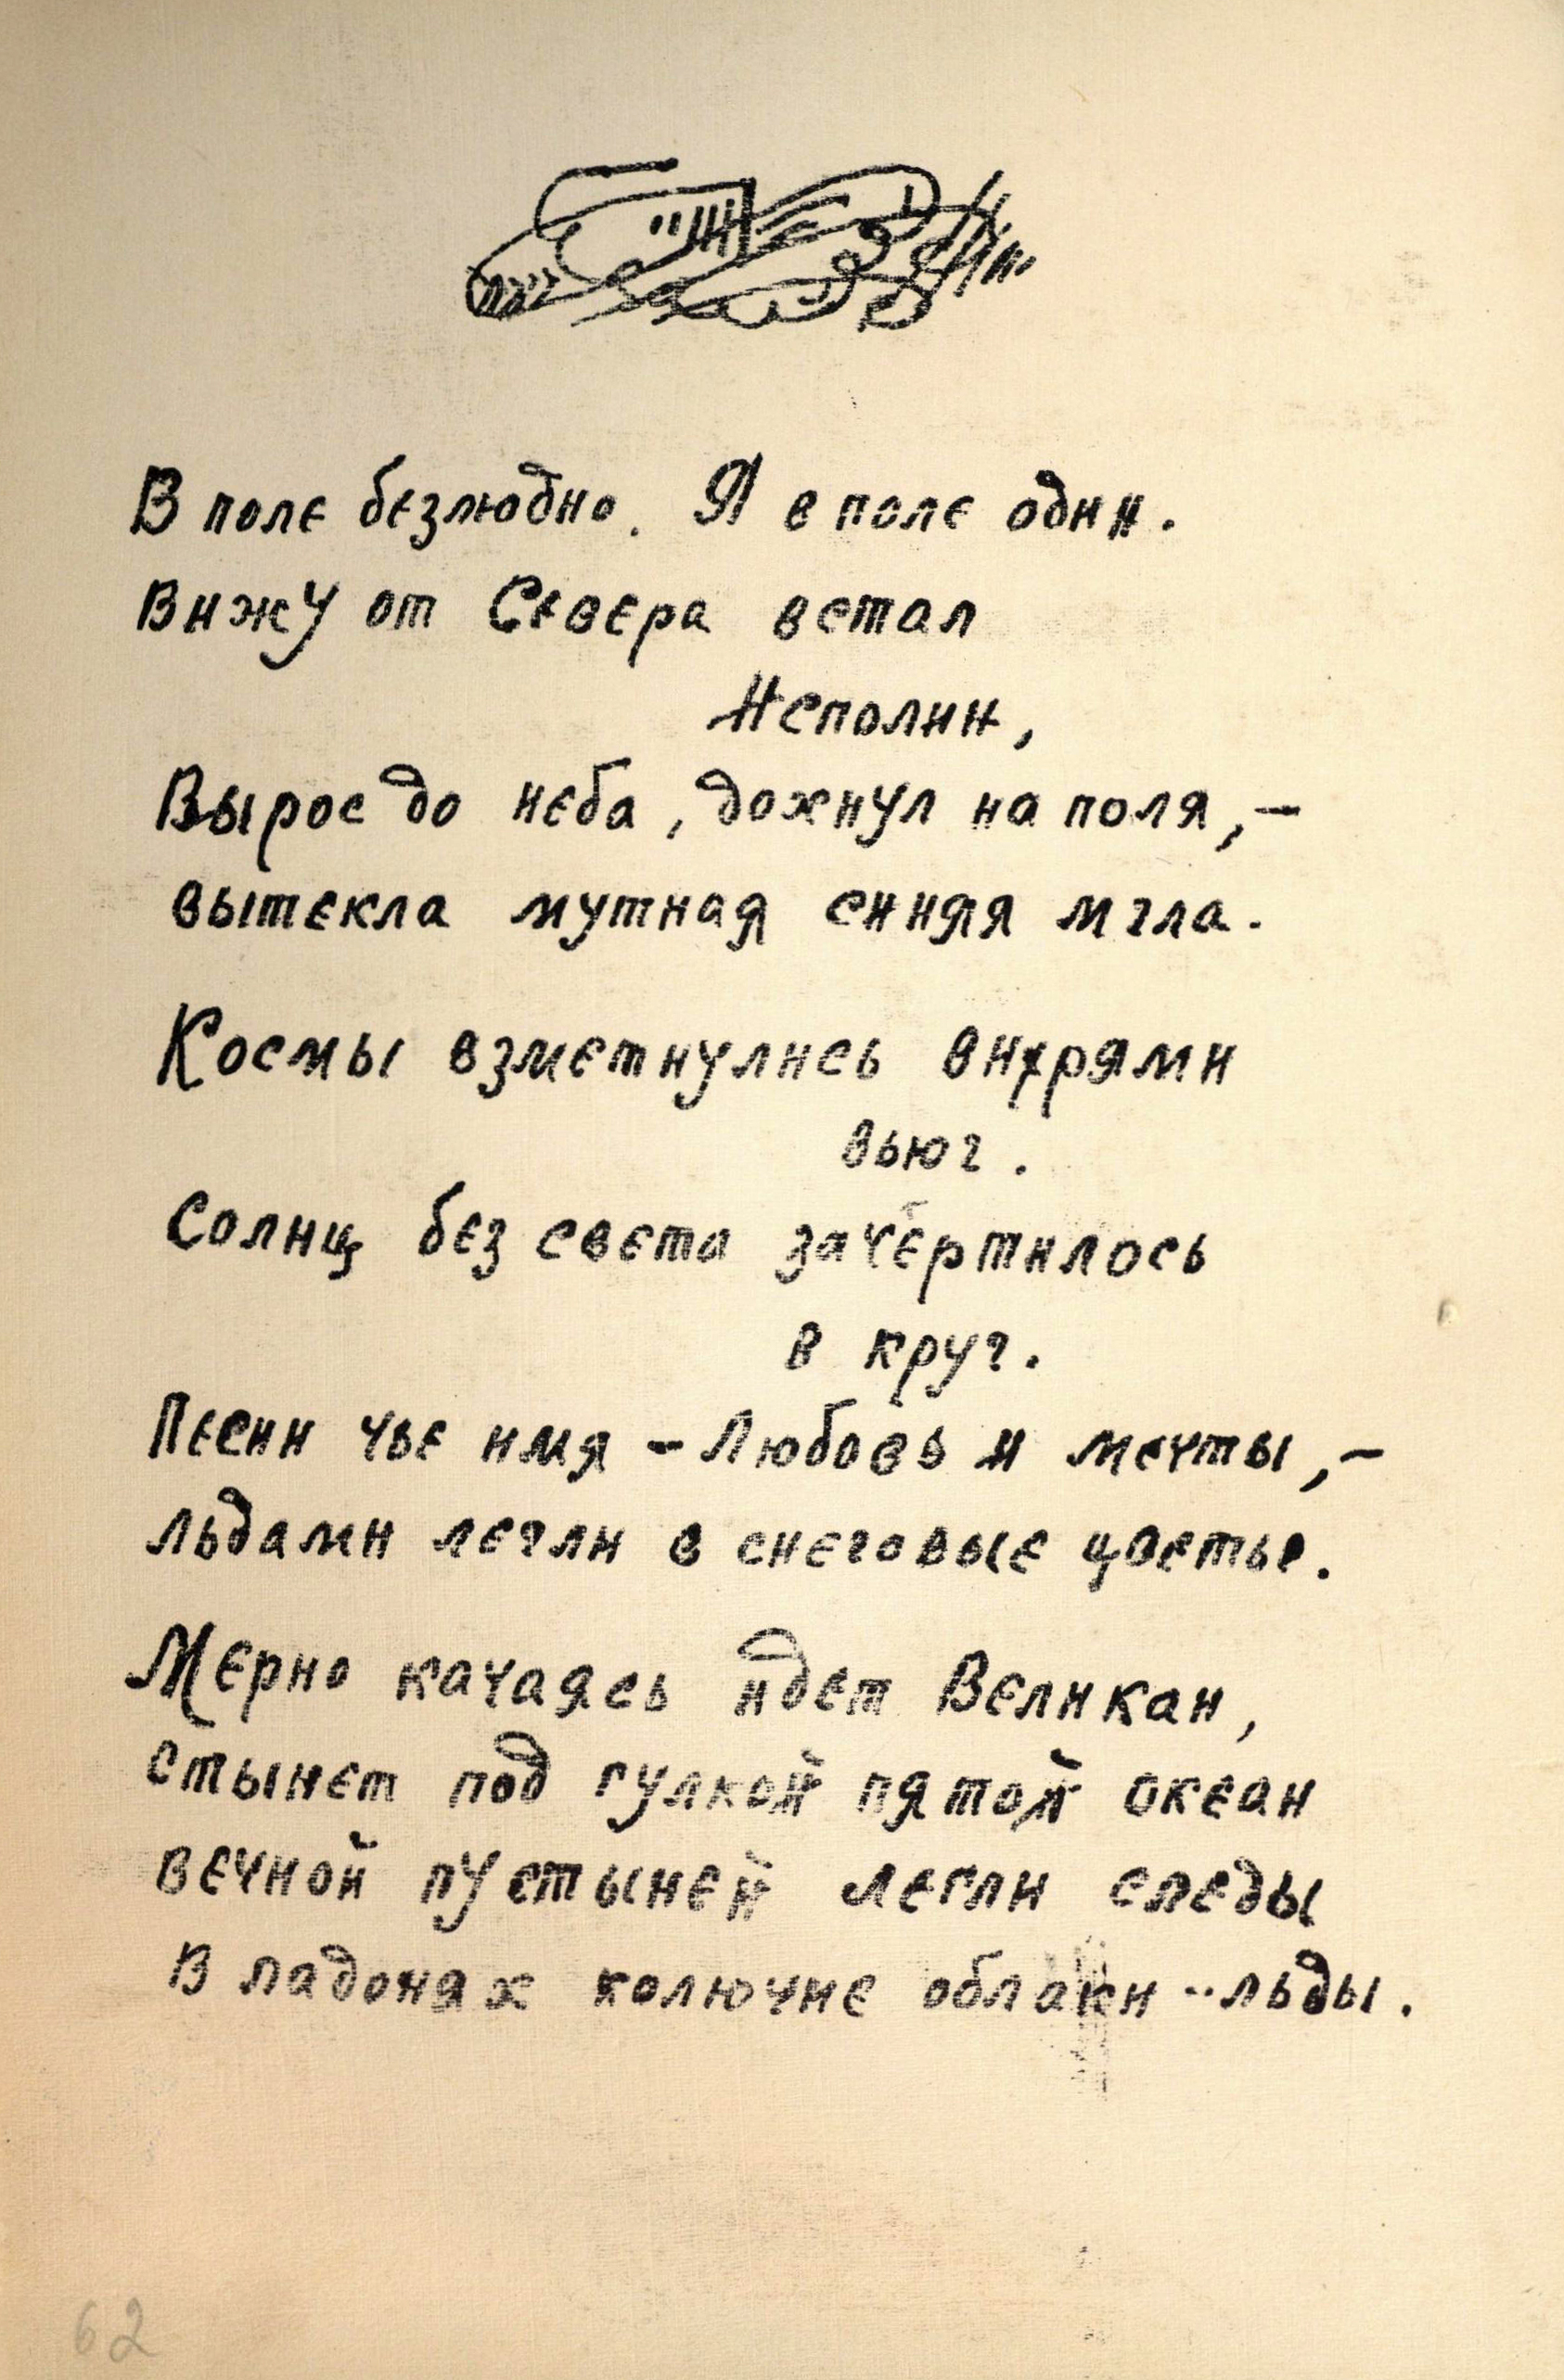 В поле безлюдно. Я в поле один.
Вижу от Севера встал
Исполин,
Вырос до неба, дохнул на поля,–
вытекла мутная синяя мгла.
Космы взметнулись вихрями
вьюг.
Солнц без света зачертилось
в круг.
Песни чье имя – Любовь и мечты,–
льдами легли в снеговые цветы.
Мерно качаясь идет Великан,
стынет под гулкой пятой океан
вечной пустыней легли следы
В ладонях колючие облаки – льды.
62